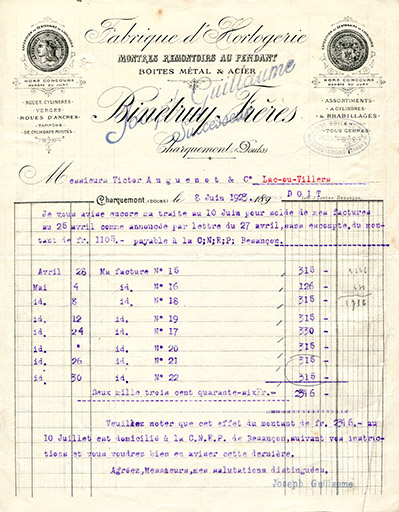 Fabrique d'Horlogerie
MONTRES REMONTOIRS AU PENDANT
BOITES MÉTAL & ACIER
HORS CONCOURS
MEMBRE DU JURY
HORS CONCOURS
MEMBRE DU JURY
Joseph Guillaume
Successeur
Binétruy Frères
Charquemont (Doubs)
ROUES CYLINDRES
VERGES
ROUES D'ANCRES
TAMPONS
DE CYLINDRES RIVOTÉS
ASSORTIMENTS
A CYLINDRES
& RHABILLAGES
EN
TOUS GENRES
Messieurs Victor Anguenet & C° Lac-ou-Villers
Charquemont (DOUBS) le 8 Juin 1923 189 DOIT
Je vous avise encore ma traite au 10 Juin pour solde de mes factures
au 25 avril comme annoncée par lettre du 27 avril, sans escompte, du mon-
tant de fr 1105.- payable à la C;N;E;P; Besançon.
Avril 28 Ma facture N° 15 315 -
Mai 4 id. N° 16 126 -
id. 8 id. N° 18 315 -
id. 12 id. N° 19 315 -
id. 24 id. N° 17 330 -
id. " id. N° 20 315 -
id. 26 id. N° 21 315 -
id. 30 id. N° 22 315 -
Deux mille trois cent quarante-six Fr.- 2346 -
Veuillez noter que cet effet du montant de fr 2346.- au
10 Juillet est domicilié à la C.N.E.P. de Besançon, suivant vos instruc-
tions et vous voudrez bien en aviser cette dernière.
Agréez, Messieurs, mes salutations distinguées.
Joseph Guillaume